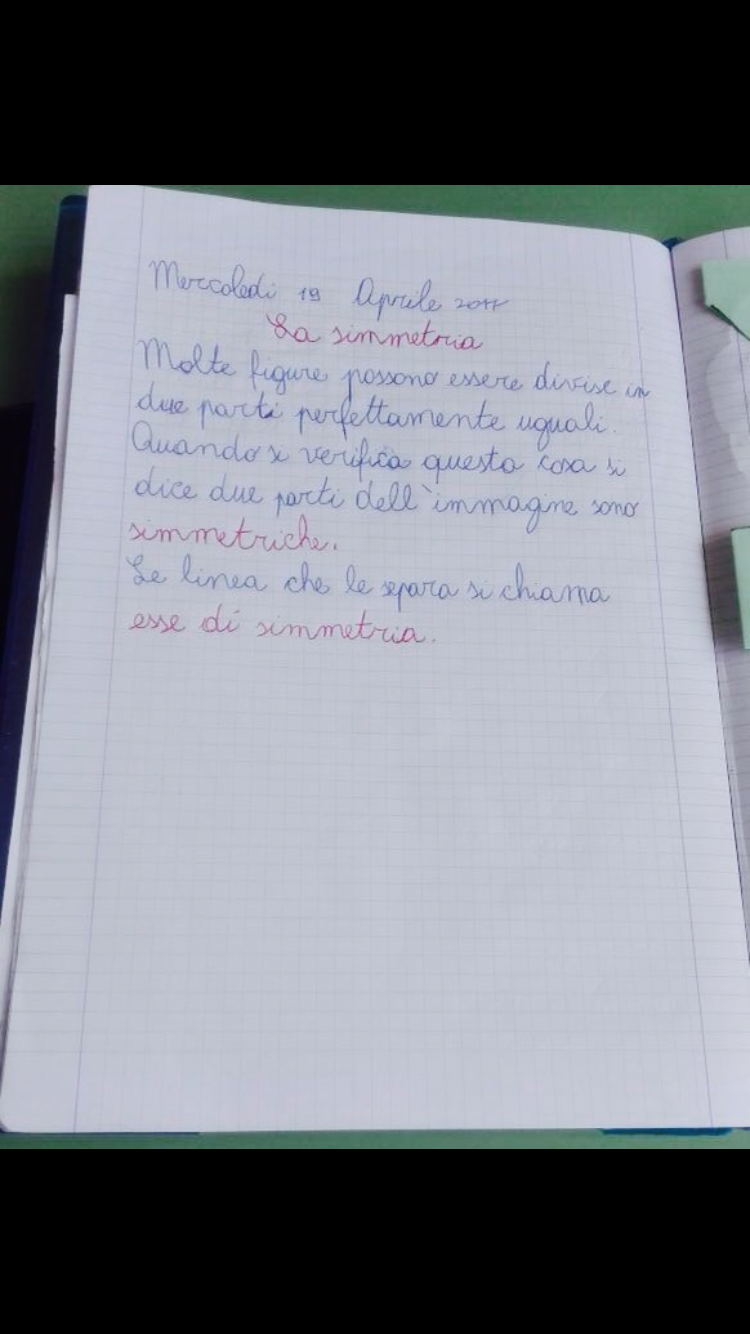 Mercoledi 19 Aprile 2017
La simmetria
Molte figure possono essere divise in
due parti perfettamente uguali.
Quando si verifica questa cosa si
dice due parti dell'immagine sono
simmetriche.
Le linea che le separa si chiama
esse di simmetria.